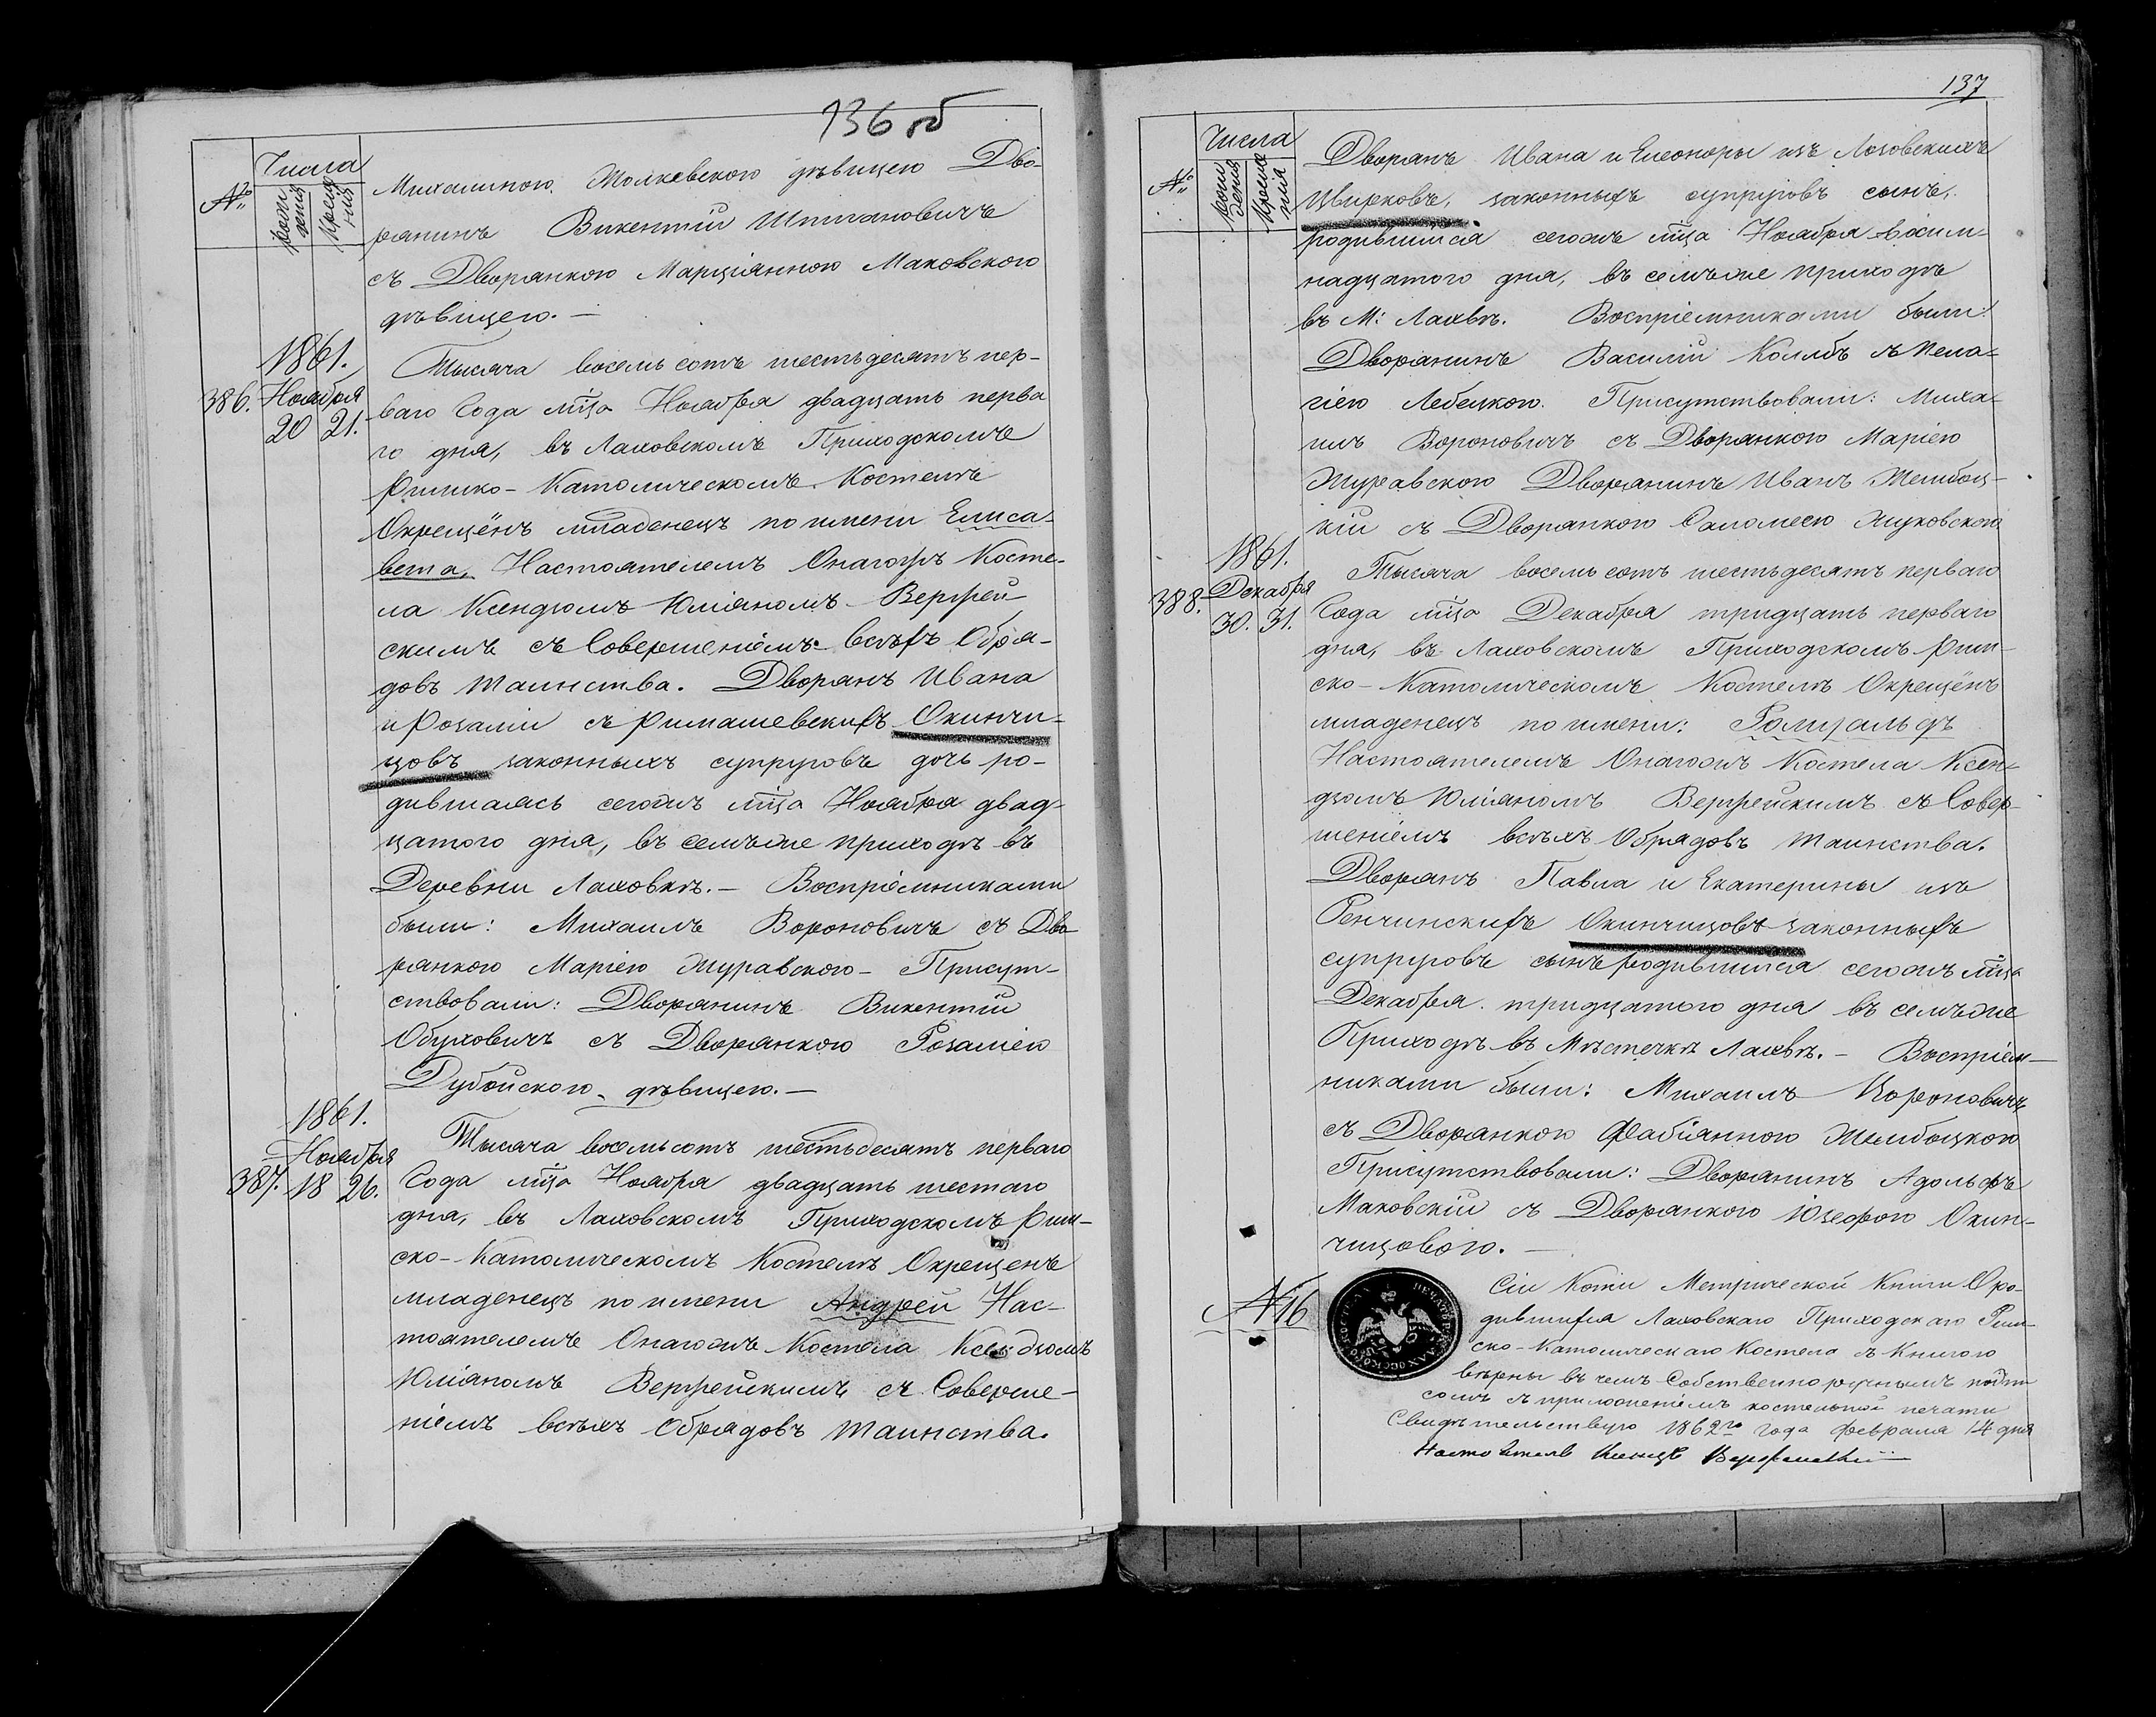 136 об
№
Числа
рождения
Крещения
Михалиною Толкевскою дѣвицею Дво-
рянинъ Викентій Штпановичъ
съ Дворянкою Марціанною Маковскою
дѣвицею. —
1861.
386. Ноября
20 21.
Тысяча восемь сотъ шестьдесятъ пер-
ваго Года мца Ноября двадцать перва
го дня, въ Лаховскомъ Приходскомъ
Римско-Католическомъ Костелѣ
Окрещёнъ младенецъ по имени Елиса-
вета, Настоятелемъ Онагожъ Косте-
ла Ксендзомъ Юліаномъ Верфей
скимъ съ Совершеніемъ всѣхъ Обря-
довъ Таинства. Дворянъ Ивана
и Розаліи съ Римашевскихъ Окинчи-
цовъ законныхъ супруговъ дочь ро-
дившаясь сегожъ мца Ноября двад-
цатого дня, въ семъже приходѣ въ
Деревни Лаховкѣ. — Воспріемниками
были: Михаилъ Вороновичъ съ Дво
рянкою Маріею Журавскою — Присут-
ствовали: Дворянинъ Викентій
Обуховичъ съ Дворянкою Розаліею
Дубойскою дѣвицею. —
1861.
Ноября
387. 18 26.
Тысяча восемьсотъ шестьдесятъ перваго
Года мца Ноября двадцать шестаго
дня, въ Лаховскомъ Приходскомъ Рим-
ско-Католическомъ Костелѣ Окрещенъ
младенецъ по имени Андрей Нас-
тоятелемъ Онагожъ Костела Ксендзомъ
Юліаномъ Верфейскимъ съ Соверше-
ніемъ всѣхъ Обрядовъ Таинства.
137
№
Числа
рождения
Крещения
Дворянъ Ивана и Елеоноры изъ Лозовскихъ
Цвирковъ, законныхъ супруговъ сынъ,
родившійся сегожъ мца Ноября восим-
надцатого дня, въ семъже приходѣ
въ М: Лахвѣ. Воспріемниками были:
Дворянинъ Василій Колбъ съ Пела-
гіею Лебецкою. Присутствовали: Миха-
илъ Вороновичъ съ Дворянкою Маріею
Журавскою Дворянинъ Иванъ Жембоц-
кій съ Дворянкою Саломеею Жуковскою
1861.
Декабря
388. 30. 31.
Тысяча восемь сотъ шестьдесятъ перваго
Года мца Декабря тридцать перваго
дня, въ Лаховскомъ Приходскомъ Рим-
ско-Католическомъ Костелѣ Окрещёнъ
младенецъ по имени: Ромуальдъ
Настоятелемъ Онагожъ Костела Ксен-
дзомъ Юліаномъ Верфейскимъ съ Совер-
шеніемъ всѣхъ Обрядовъ Таинства.
Дворянъ Павла и Екатерины изъ
Генчинскихъ Окинчицовъ законныхъ
супруговъ сынъ родившійся сегожъ мца
Декабря тридцатого дня въ семъже
Приходѣ въ Мѣстечкѣ Лахвѣ. — Воспріем-
никами были: Михаилъ Вороновичъ
съ Дворянкою Фабіанною Жембоцкою
Присутствовали: Дворянинъ Адольфъ
Маковскій съ Дворянкою Юзефою Окин-
чицовою. —
№ 16
Сіи Копіи Метрической Книги О ро-
дившихся Лаховскаго Приходскаго Рим-
ско-Католическаго Костела съ Книгою
вѣрны въ чемъ Собственноручнымъ подпи
сомъ съ приложеніемъ костельной печати
Свидѣтельствую 1862го года Февраля 14 дня
Настоятель Ксендзъ Верфейскій